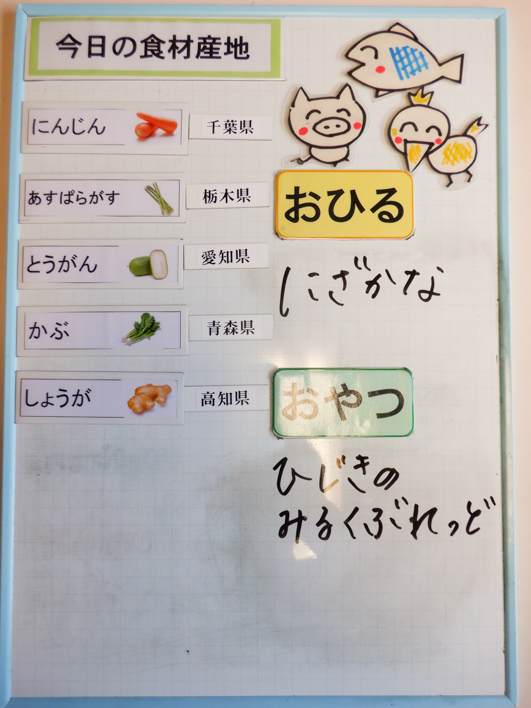 今日の食材産地
にんじん 千葉県
あすぱらがす 栃木県
とうがん 愛知県
かぶ 青森県
しょうが 高知県
おひる
にざかな
おやつ
ひじきの
みるくぶれっど